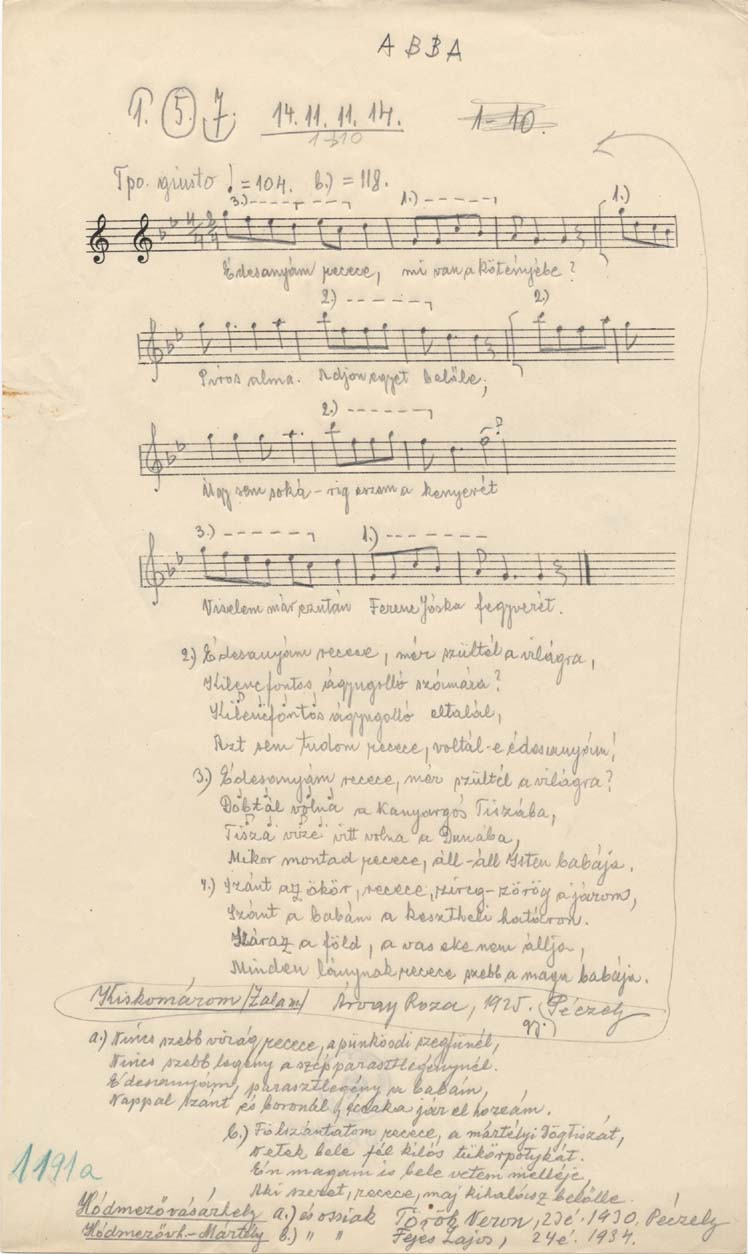 ABBA
1. 5. 7. 14. 11. 11. 14. 1-10.
1-b10
Tpo. giusto ♩=104. b.) =118.
3.) 1.) 1.)
4/4
Édesanyám recece, mi van a kötényébe?
2.) 2.)
Piros alma. Adjon egyet belőle;
2.)
Úgy sem soká-rig eszem a kenyerét
3.) 1.)
Viselem már ezután Ferenc Jóska fegyverét.
2.) Édesanyám recece, mér szültél a világra,
Kilenc fontos ágyugolló számára?
Kilencfontos ágyugolló eltalál,
Azt sem tudom recece, voltál-e édesanyám!
3.) Édesanyám recece, mér szültél a világra?
Dobtál volna a Kanyargós Tiszába,
Tisza vize vitt volna a Dunába,
Mikor montad recece, áll-áll Isten babája.
4.) Szánt az ökör, recece, zöreg-zörög a járom,
Szánt a babám a kesztheli határon.
Száraz a föld, a vas eke nem állja,
Minden lánynak recece szebb a maga babája.
Kiskomárom /Zalam/ Árvay Roza, 1925. (Péczely
gy.)
a.) Nincs szebb virág recece, a pünkösdi szegfünél,
Nincs szebb legény a szép parasztlegénynél.
Édesanyám, parasztlegény a babám,
Nappal szánt és boronál, écaka jár el hozzám.
b.) Fölszántatom recece, a mártélyi Dögtiszát,
Vetek bele fél kilós tükörpotykát.
Én magam is bele vetem melléje,
Aki szeret, recece, maj kihalász belőlle.
1191a
Hódmezővásárhely a.) és ossiak Török Veron, 23 é. 1930. Péczely
Hódmezővh.-Mártély b.) " " Fejes Lajos, 24 é. 1934.